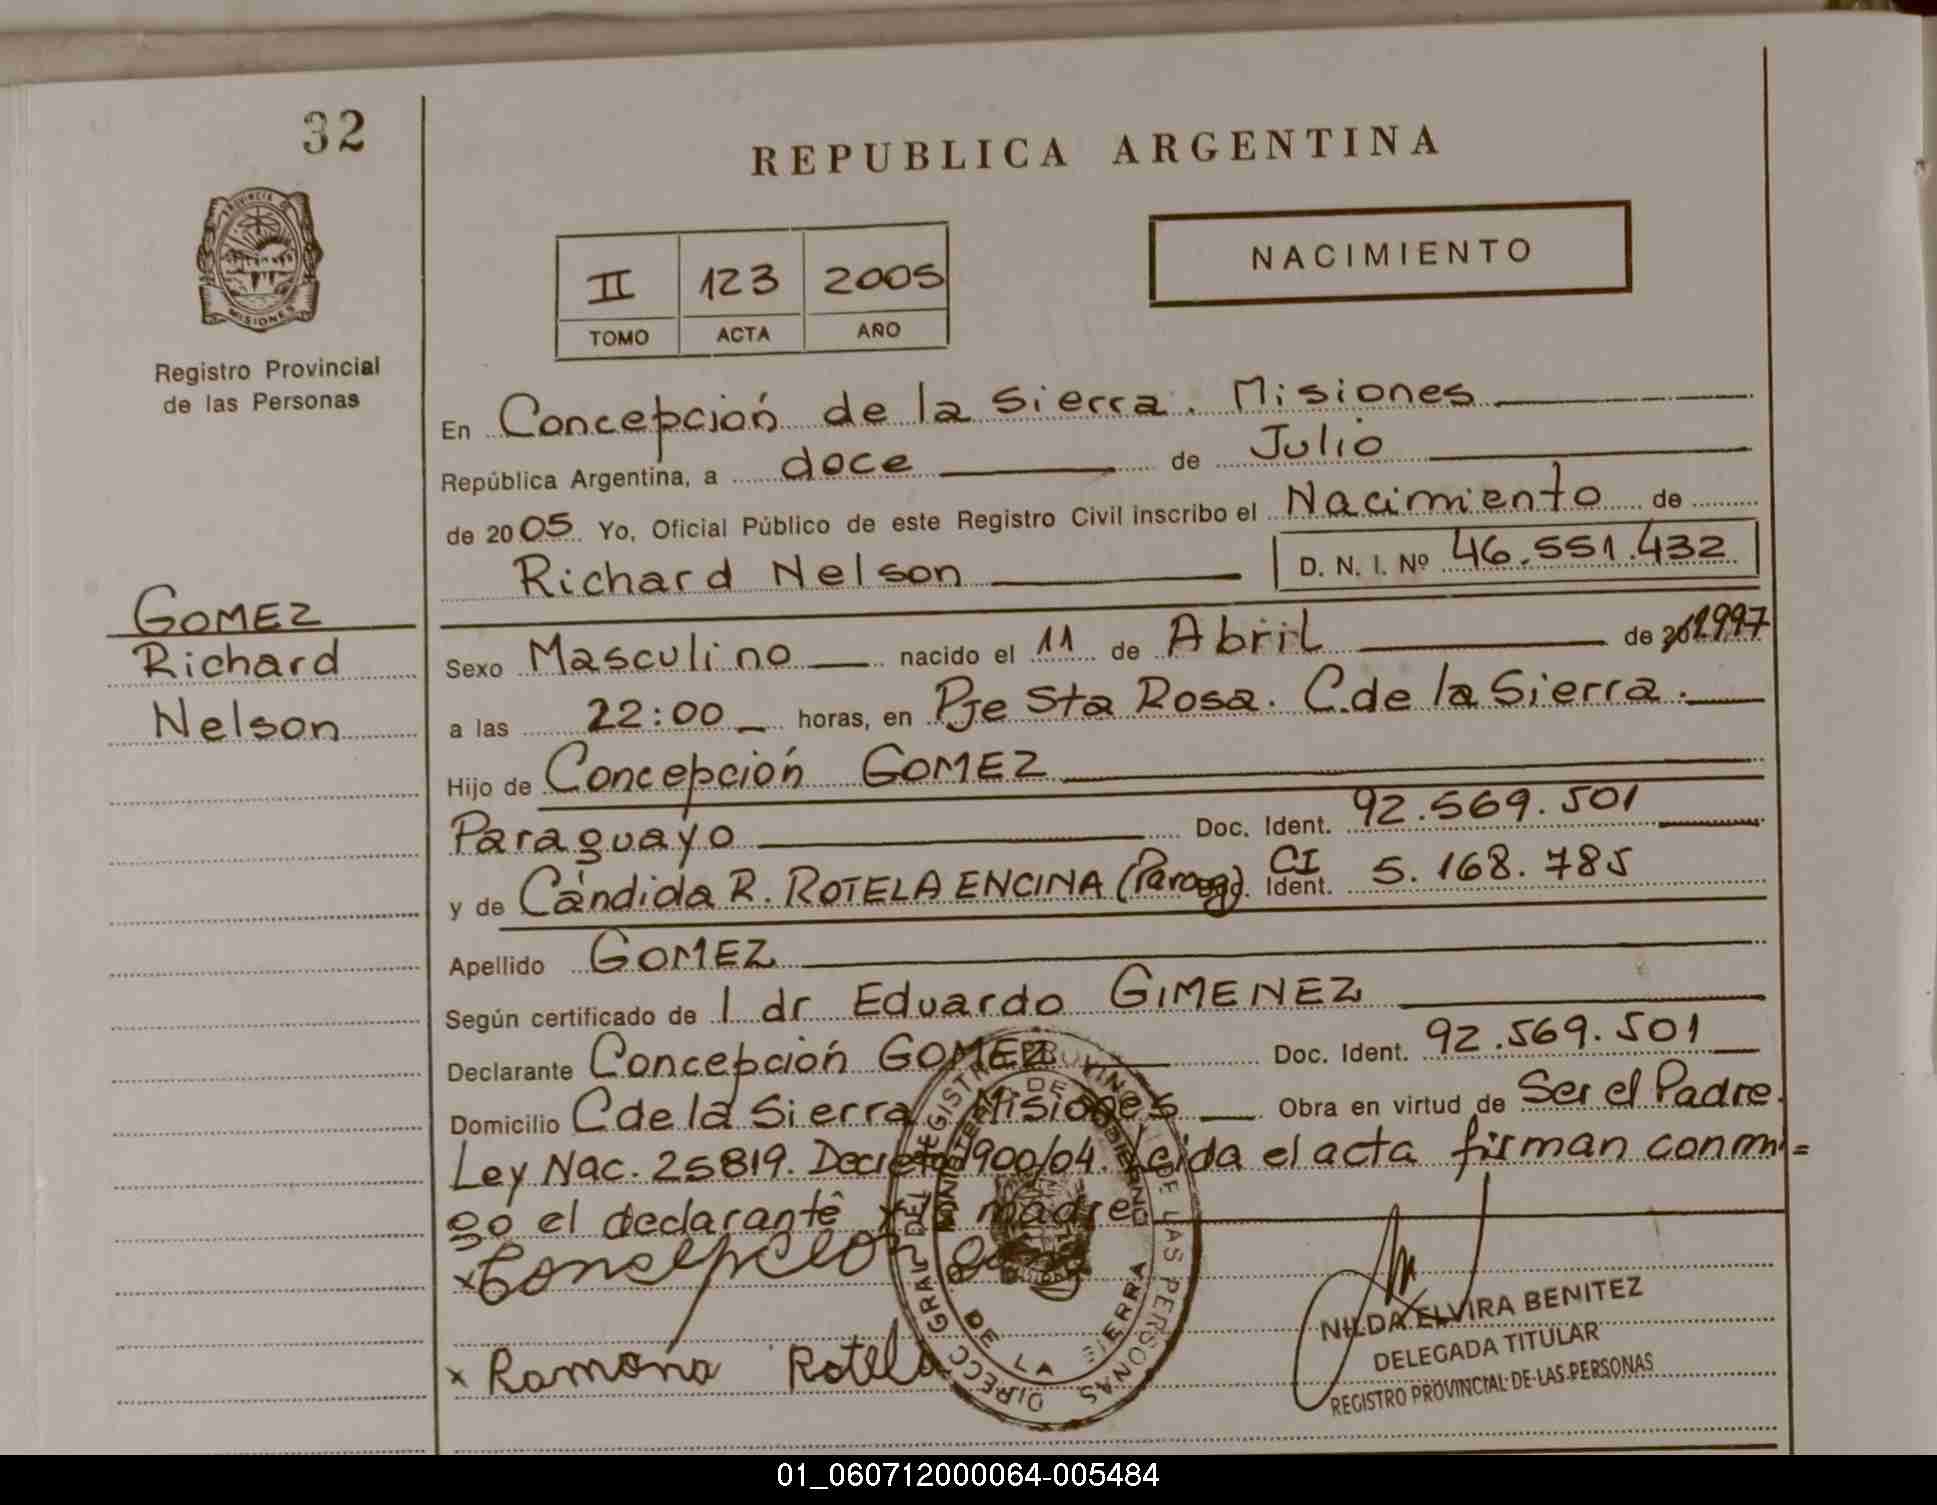 32
REPUBLICA ARGENTINA
PROVINCIA D
MISIONES
Registro Provincial
de las Personas
II 123 2005
TOMO ACTA AÑO
NACIMIENTO
En Concepción de la Sierra. Misiones
República Argentina, a doce de Julio
de 2005 Yo, Oficial Público de este Registro Civil inscribo el Nacimiento de
Richard Nelson D. N. I. Nº 46.551.432
GOMEZ
Richard
Nelson
Sexo Masculino nacido el 11 de Abril de 1997
a las 22:00 horas, en Pje Sta Rosa. C.de la Sierra.
Hijo de Concepción GOMEZ
Paraguayo Doc. Ident. 92.569.501
y de Cándida R. ROTELA ENCINA (Parag). CI Ident. 5.168.785
Apellido GOMEZ
Según certificado de l dr Eduardo GIMENEZ
Declarante Concepción GOMEZ Doc. Ident. 92.569.501
Domicilio C de la Sierra Misiones Obra en virtud de Ser el Padre.
Ley Nac. 25819. Decreto 1900/04. Leída el acta firman conmi=
go el declarante y la madre
x Concepcion
x Ramona Rotela
DIRECC GRAL DEL REGISTRO PROVINCIAL DE LAS PERSONAS
MINISTERIO DE GOBIERNO
DE LA SIERRA
NILDA ELVIRA BENITEZ
DELEGADA TITULAR
REGISTRO PROVINCIAL DE LAS PERSONAS
01_060712000064-005484